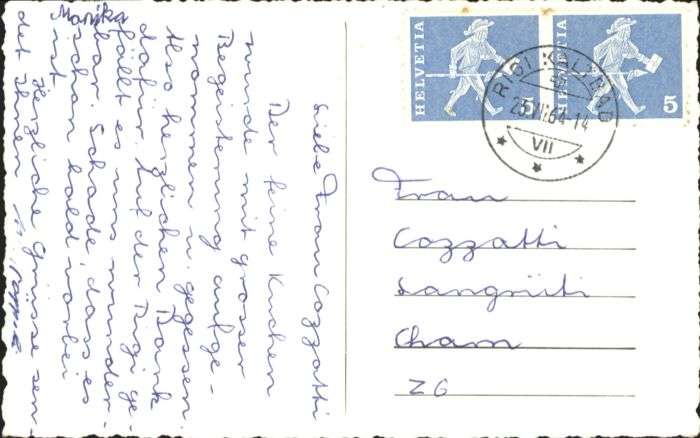 Liebe Frau Cozzatti
Der feine Kuchen
wurde mit grosser
Begeisterung aufge-
nommen u. gegessen
Also herzlichen Dank
dafür. Auf der Rigi ge-
fällt es uns wunder-
bar. Schade, dass es
schon bald vorbei
ist.
Herzliche Grüsse sen-
det Ihnen
Marika
HELVETIA
HELVETIA
5
RIGI KALTBAD
25.VII.64-14
VII
Frau
Cozzatti
Langrüti
Cham
ZG